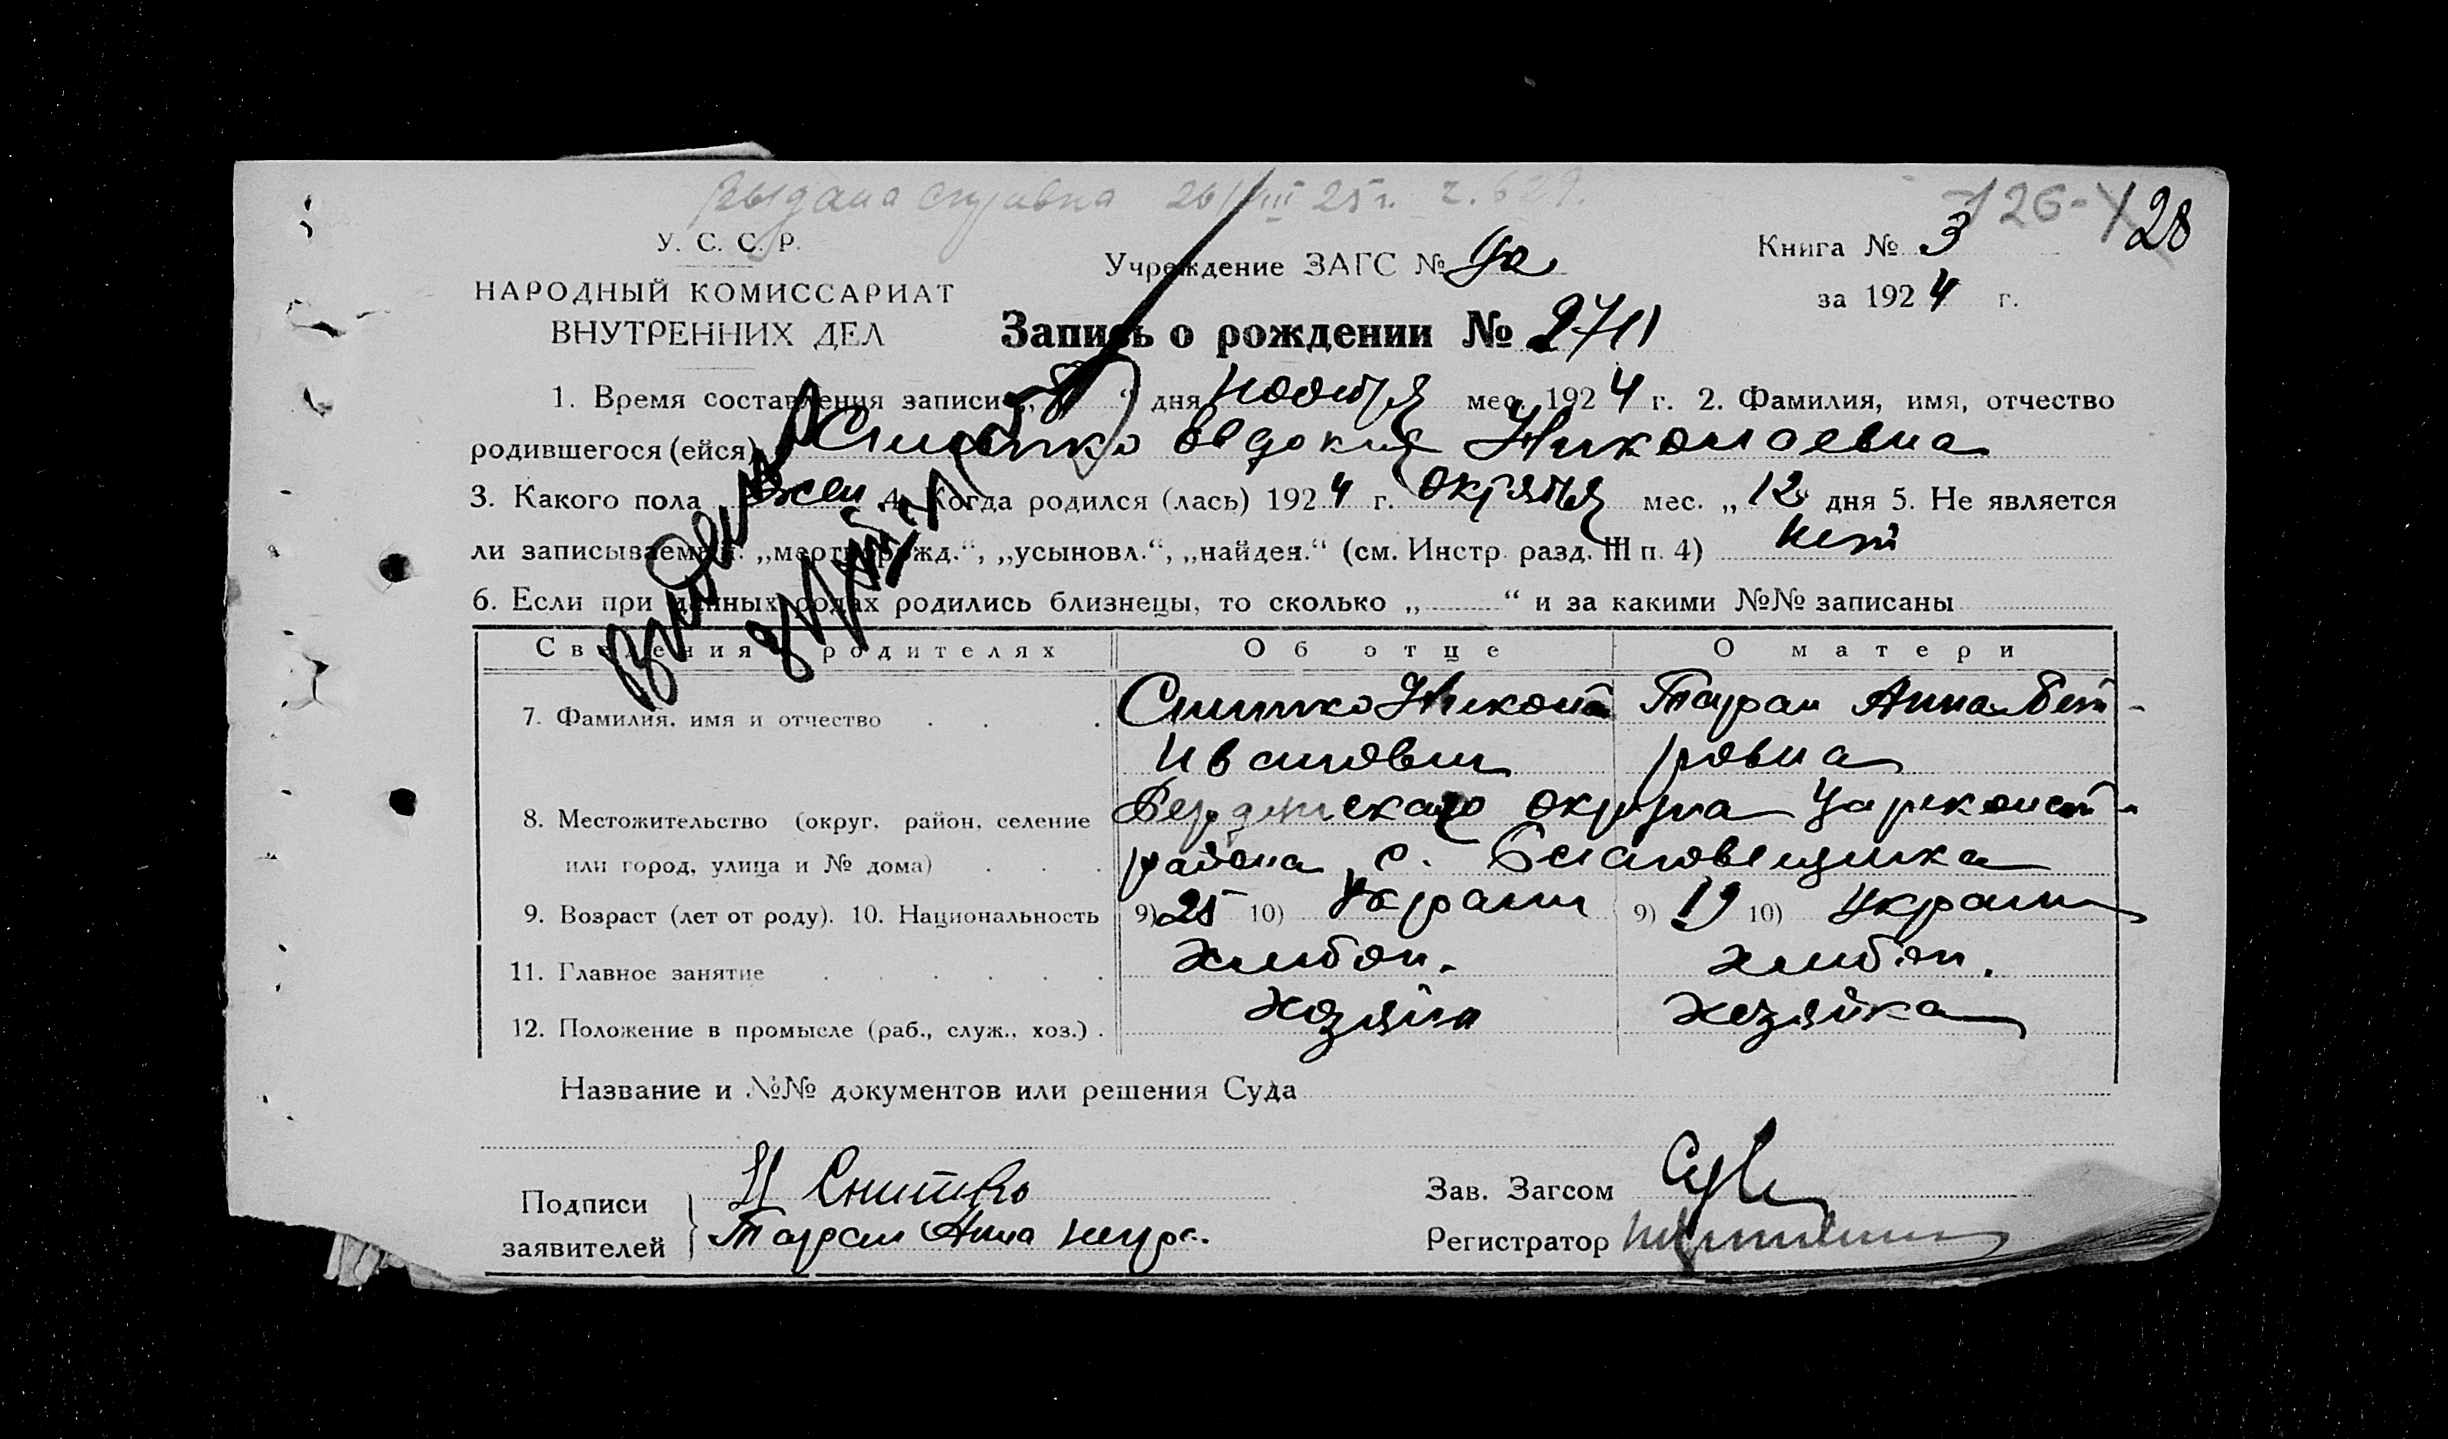 Выдана справка 26/VIII 25 г.
126- 128
У. С. С. Р.
НАРОДНЫЙ КОМИССАРИАТ
ВНУТРЕННИХ ДЕЛ
Учреждение ЗАГС №
Книга № 3
за 1924 г.
Запись о рождении № 2711
1. Время составления записи „ “ дня ноября мес. 1924 г. 2. Фамилия, имя, отчество
родившегося (ейся) Снитко Овдокия Николаевна
3. Какого пола жен 4. Когда родился (лась) 1924 г. октября мес. „12 дня 5. Не является
ли записываемый: „мертворожд.“, „усыновл.“, „найден.“ (см. Инстр. разд. III п. 4) нет
6. Если при данных родах родились близнецы, то сколько „ “ и за какими №№ записаны
Сведения о родителях Об отце О матери
7. Фамилия, имя и отчество Снитко Никол Таран Анна Пет-
Иванович ровна
8. Местожительство (округ, район, селение Бердянскаго округа Царконст-
или город, улица и № дома) района с. Благовещинка
9. Возраст (лет от роду). 10. Национальность 9) 25 10) Украин 9) 19 10) Украин
11. Главное занятие хлибоп. хлибоп.
12. Положение в промысле (раб., служ., хоз.) хозяин хозяйка
Название и №№ документов или решения Суда
Подписи
заявителей
Н Снитко
Таран Анна негр.
Зав. Загсом
Регистратор